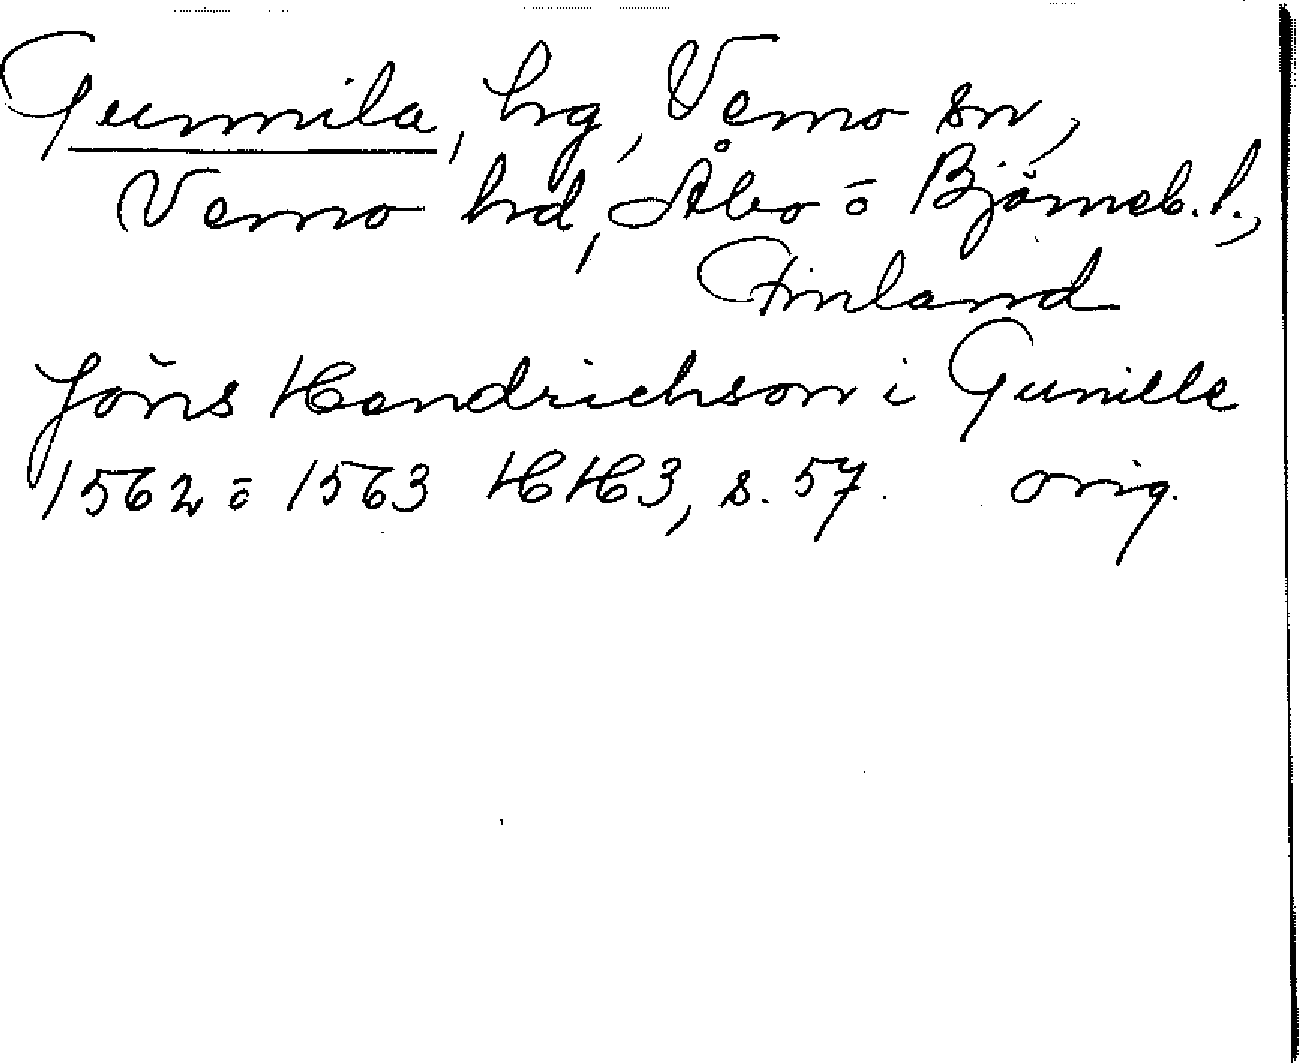 Gunnila, hg, Vemo sn,
Vemo hd, Åbo o Björneb. l.,
Finland
Jöns Hendrichson i Gunille
1562 o 1563 HH3, s. 57. orig.